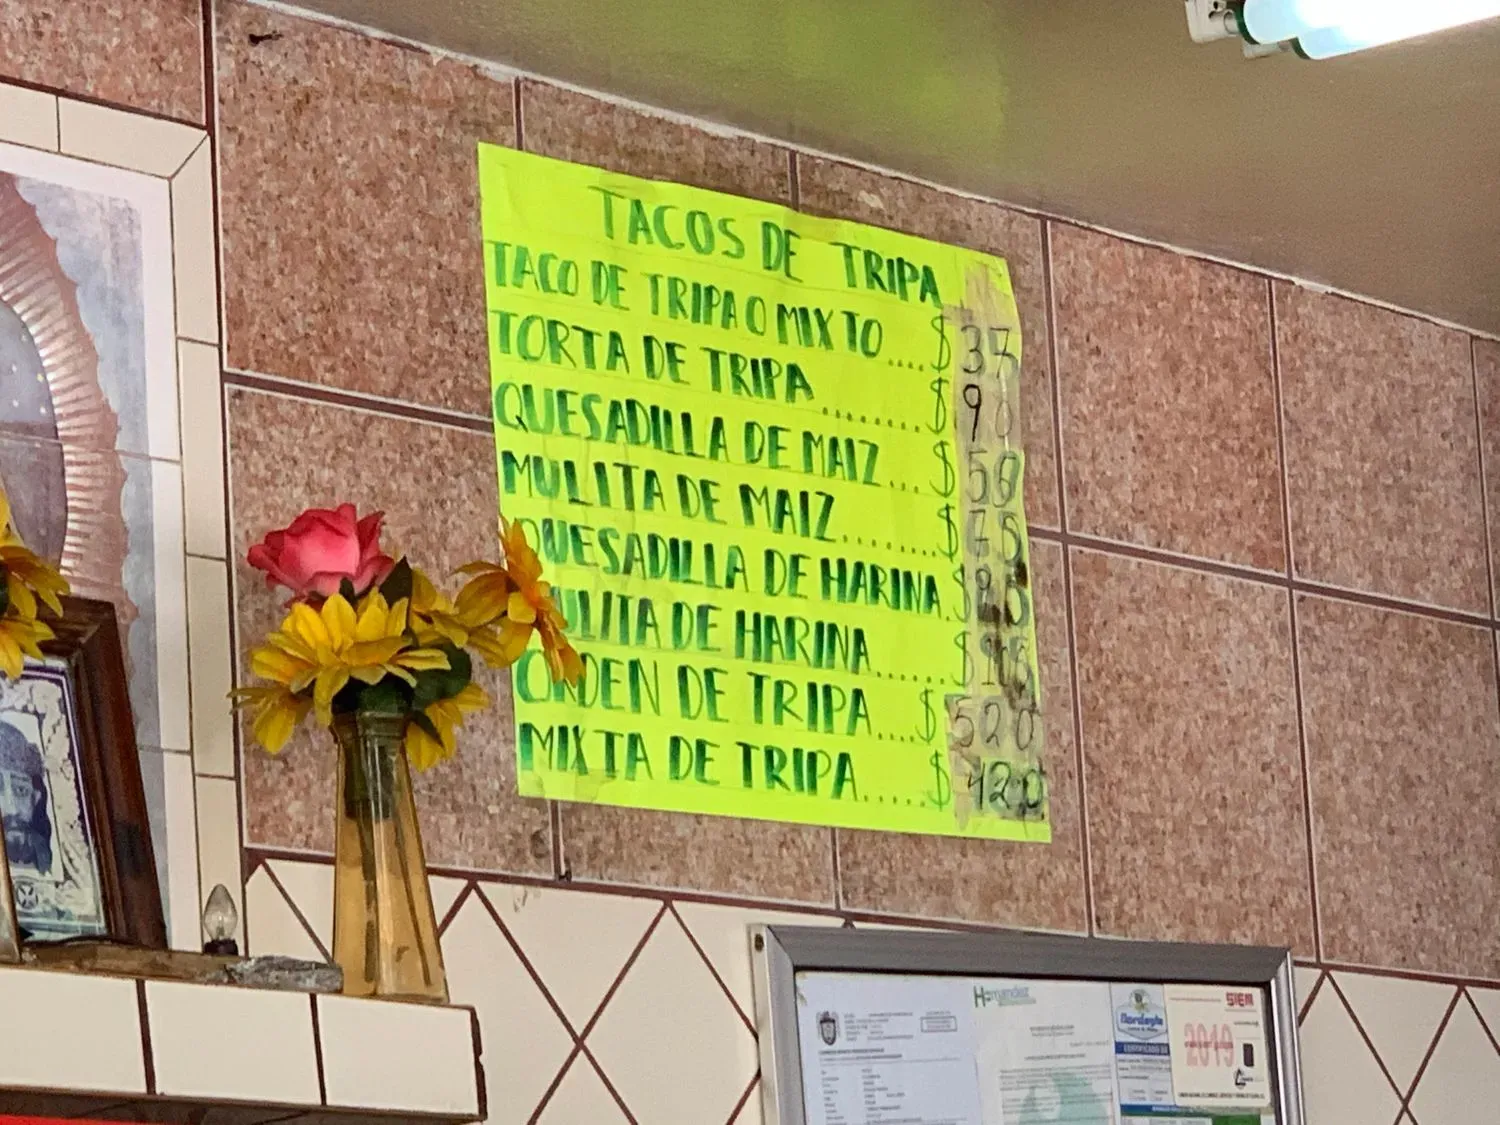 TACOS DE TRIPA
TACO DE TRIPA O MIXTO....$ 37
TORTA DE TRIPA........$ 90
QUESADILLA DE MAIZ...$ 50
MULITA DE MAIZ........$ 75
QUESADILLA DE HARINA.$
MULITA DE HARINA.......$
ORDEN DE TRIPA....$ 520
MIXTA DE TRIPA.....$ 420
Hernández
SIEM
2019